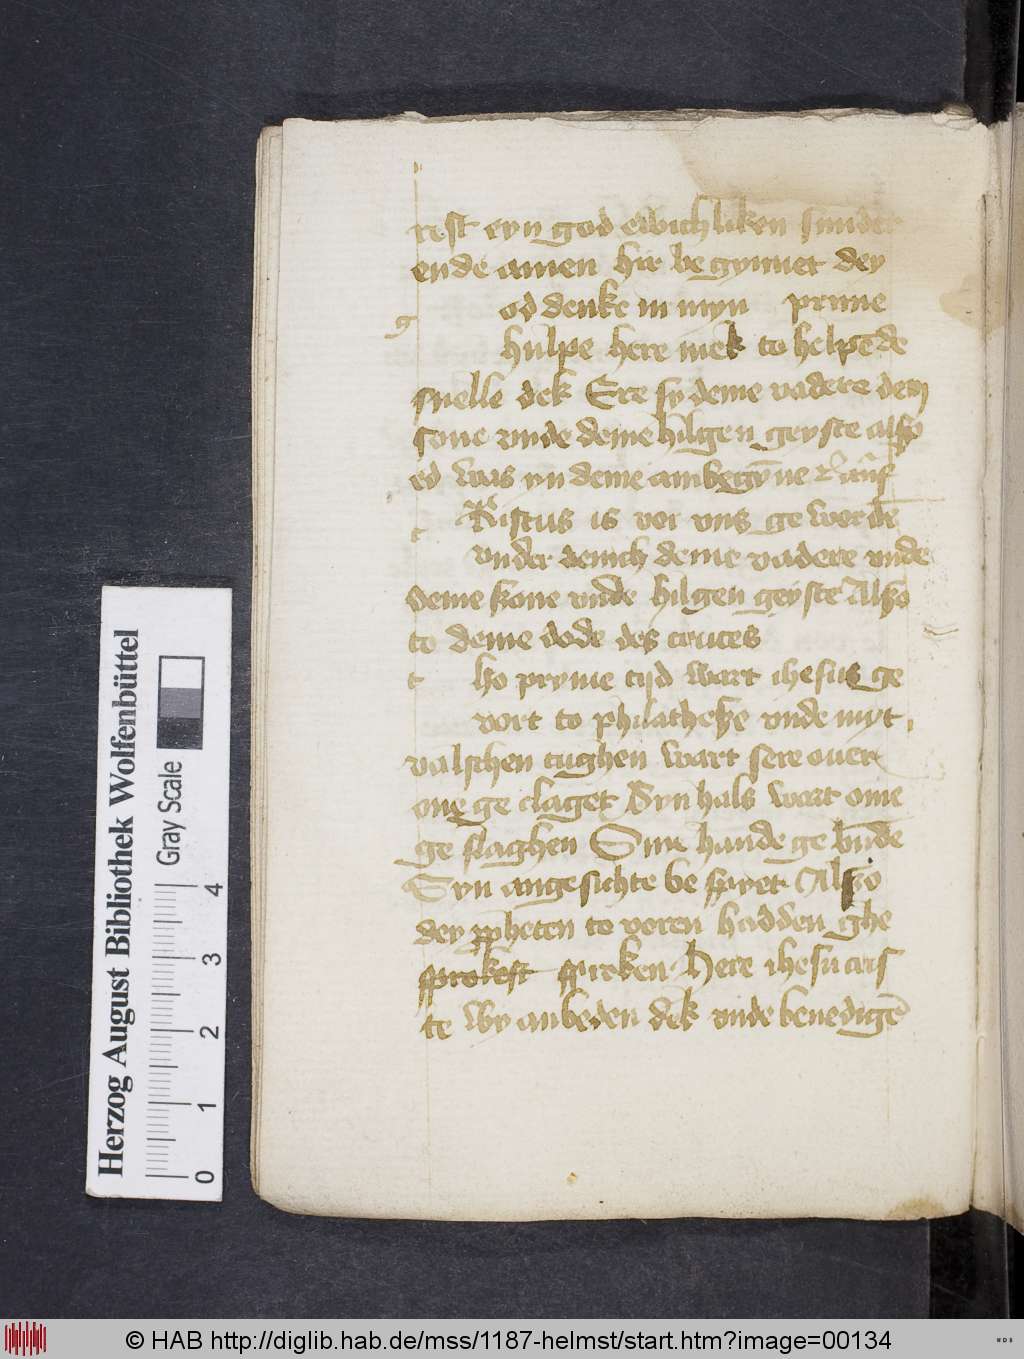 rest eyn god ewich liken sunder
ende amen hir be gynnet dey
g od denke in myn prime
hulpe here mek to helpēde
snelle dek Ere sy deme vadere dem
sone vnde deme hilgen geyste also
ed was yn deme anbegȳne
c Ristus is vor vns ge wordē
vnder denich deme vadere vnde
deme sone vnde hilgen geyste Also
to deme dode des cruces
t ho pryme tijd wart ihesus ge
vort to philathese vnde myt
valschen tughen wart sere ouer
one ge claget Syn hals wart ome
ge slaghen Sine hande ge būdē
Syn angesichte be spyet Also
dey ppheten to voren hadden ghe
sprokest sproken Here ihesu cris
te wy anbeden dek vnde benedigē
Herzog August Bibliothek Wolfenbüttel
Gray Scale
0 1 2 3 4
© HAB http://diglib.hab.de/mss/1187-helmst/start.htm?image=00134